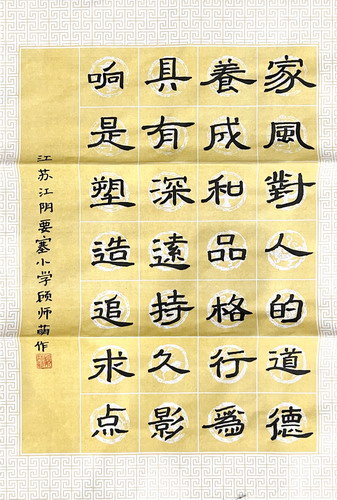 家風對人的道德
養成和品格行爲
具有深遠持久影
响是塑造追求点
江苏江阴要塞小学顾师作